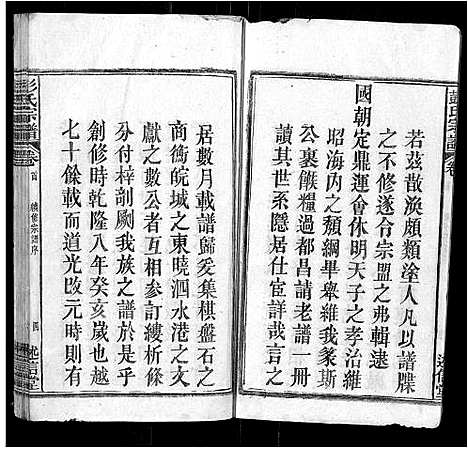 若茲散渙頗類塗人凡以譜牒
之不修遂令宗盟之弗輯逮
國朝定鼎運會休明天子之孝治維
昭海內之頹綱畢舉維我篆斯
公裹餱糧過都昌請老譜一冊
讀其世系隱居仕宦詳哉言之
彭氏宗譜
卷
首
續修宗譜序
四
述信堂
居數月載譜歸爰集棋盤石之
商衡皖城之東曉泗水港之文
獻之數公者互相參訂縷析條
分付梓剞劂我族之譜於是共
創修時乾隆八年癸亥歲也越
七十餘載而道光改元時則有